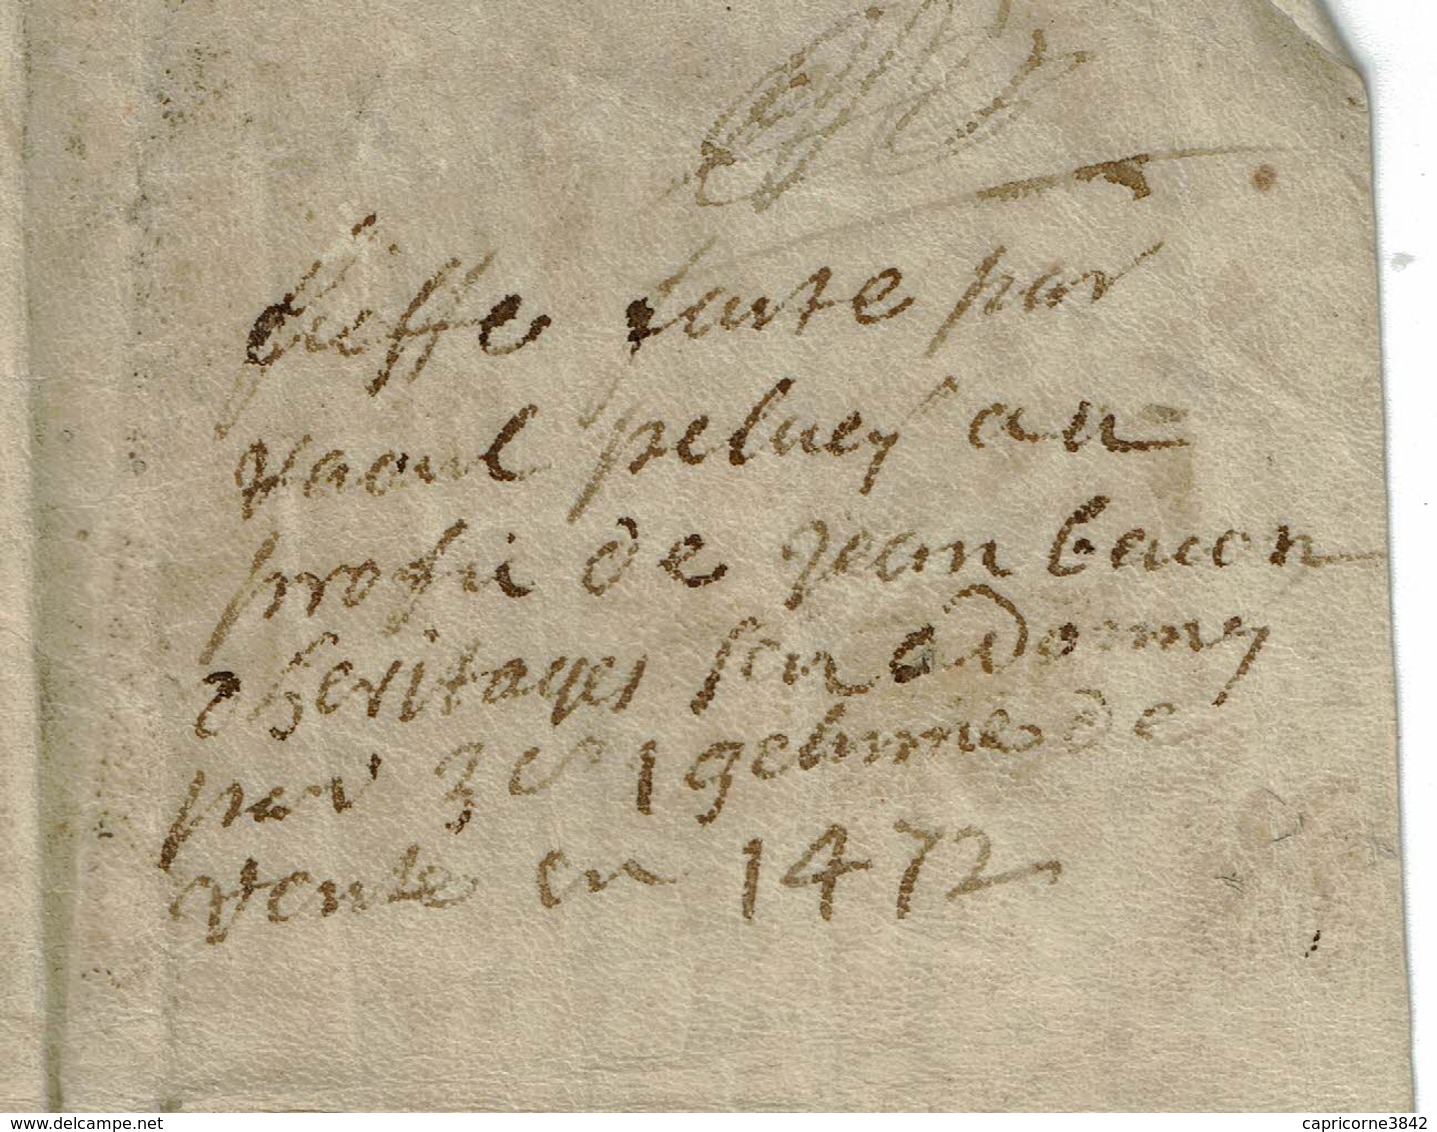 fieffe faite par
raoul peluey au
profit de jean bacon
d heritages sen adomey
par 3 s 1 geline de
rente en 1472
www.delcampe.net
capricorne3842